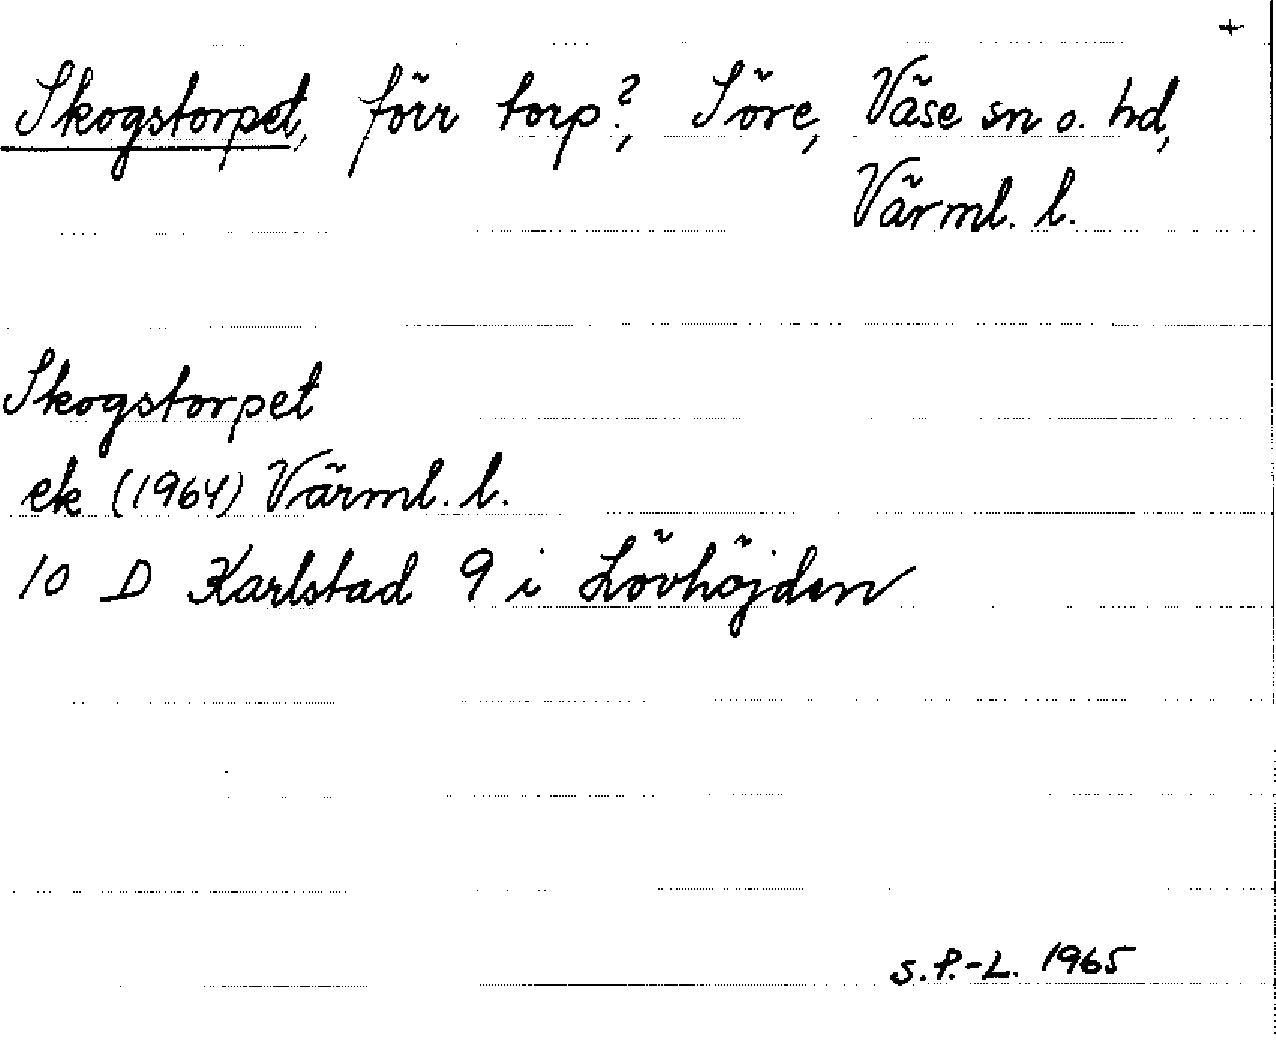 +
Skogstorpet, förr torp?, Söre, Väse sn o. hd,
Värml. l.
Skogstorpet
ek (1964) Värml. l.
10 D Karlstad 9 i Lövhöjden
S.P.-L. 1965